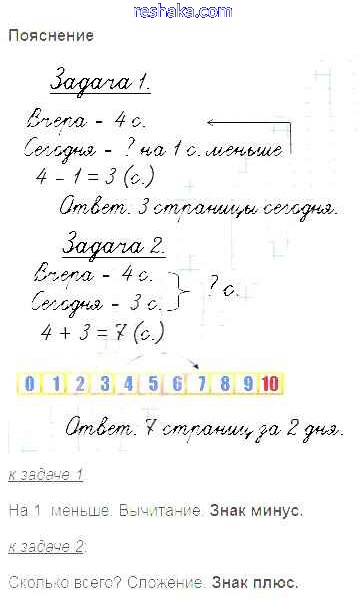 reshaka.com
Пояснение
Задача 1.
Вчера - 4 с.
Сегодня - ? на 1 с. меньше
4 - 1 = 3 (с.)
Ответ. 3 страницы сегодня.
Задача 2.
Вчера - 4с.
Сегодня - 3 с.
? с.
4 + 3 = 7 (с.)
0 1 2 3 4 5 6 7 8 9 10
Ответ. 7 страниц за 2 дня.
к задаче 1
На 1 меньше. Вычитание. Знак минус.
к задаче 2:
Сколько всего? Сложение. Знак плюс.